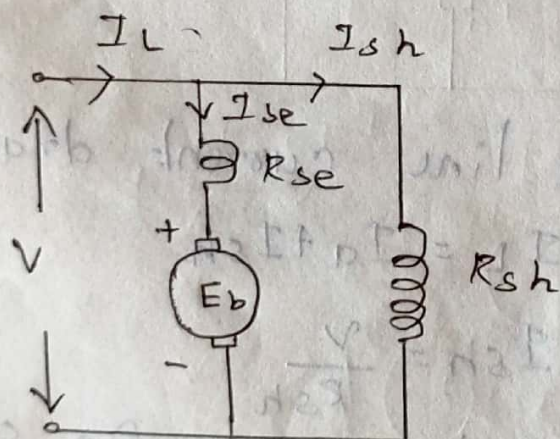 IL Ish
Ise
Rse
+
V
Eb
Rsh
-